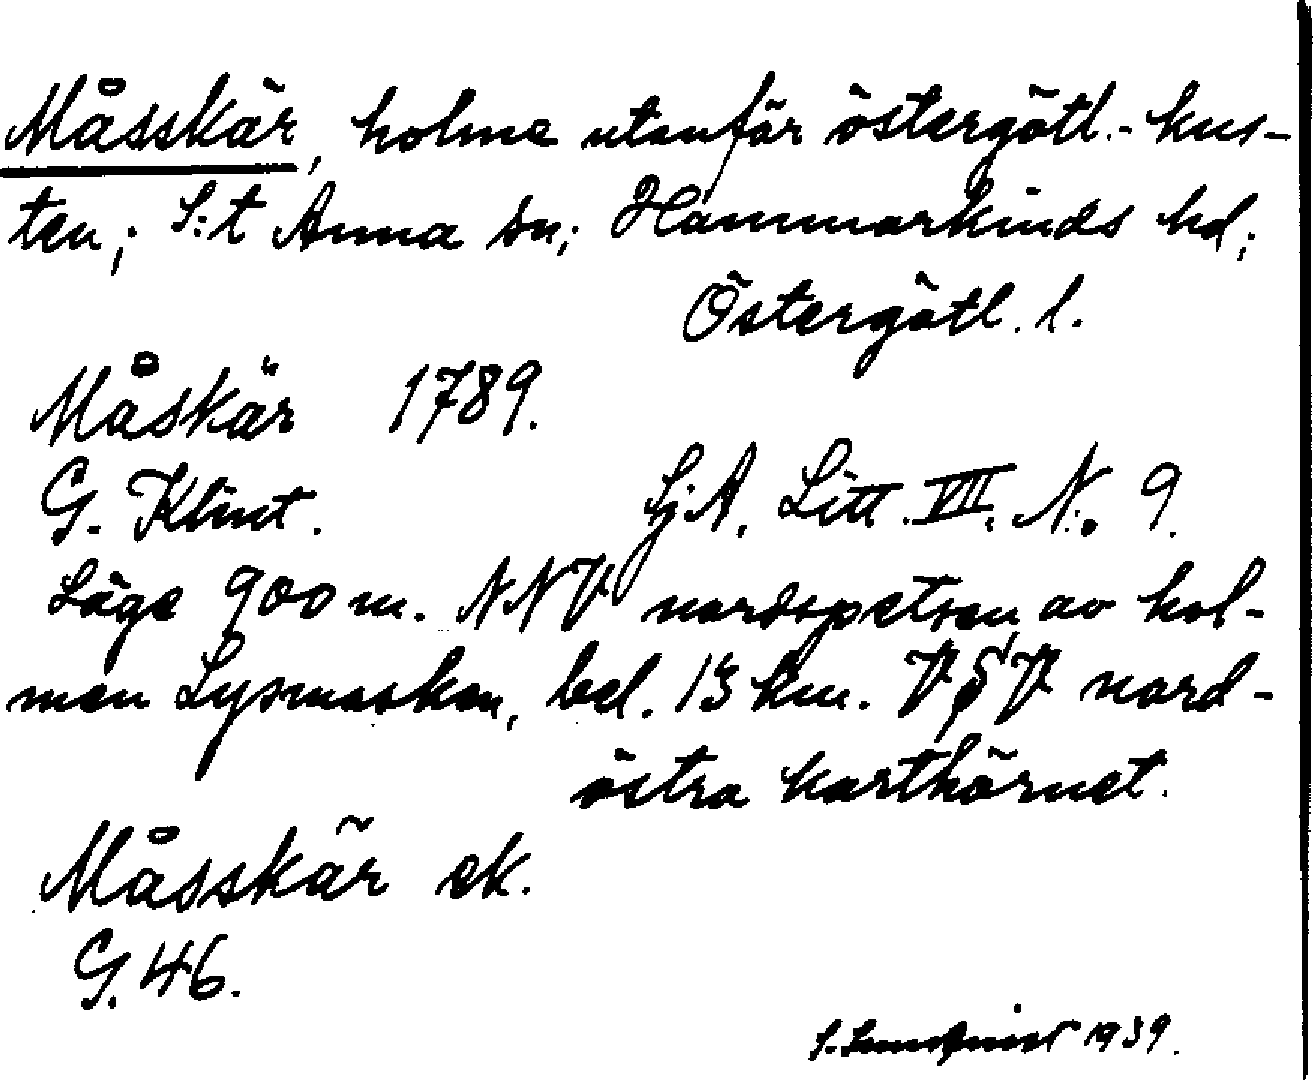 Måsskär, holme utanför östergötl.- kus-
ten; S:t Anna sn; Hammarkinds hd;
Östergötl. l.
Måskär 1789.
G. Klint. Sj.A. Litt. VII. N:o 9.
Läge 900 m. NNV nordspetsen av hol-
men Lysmasken, bel. 13 km. VSV nord-
östra karthörnet.
Måsskär ek.
G. 46.
S. Lundqvist 1939.